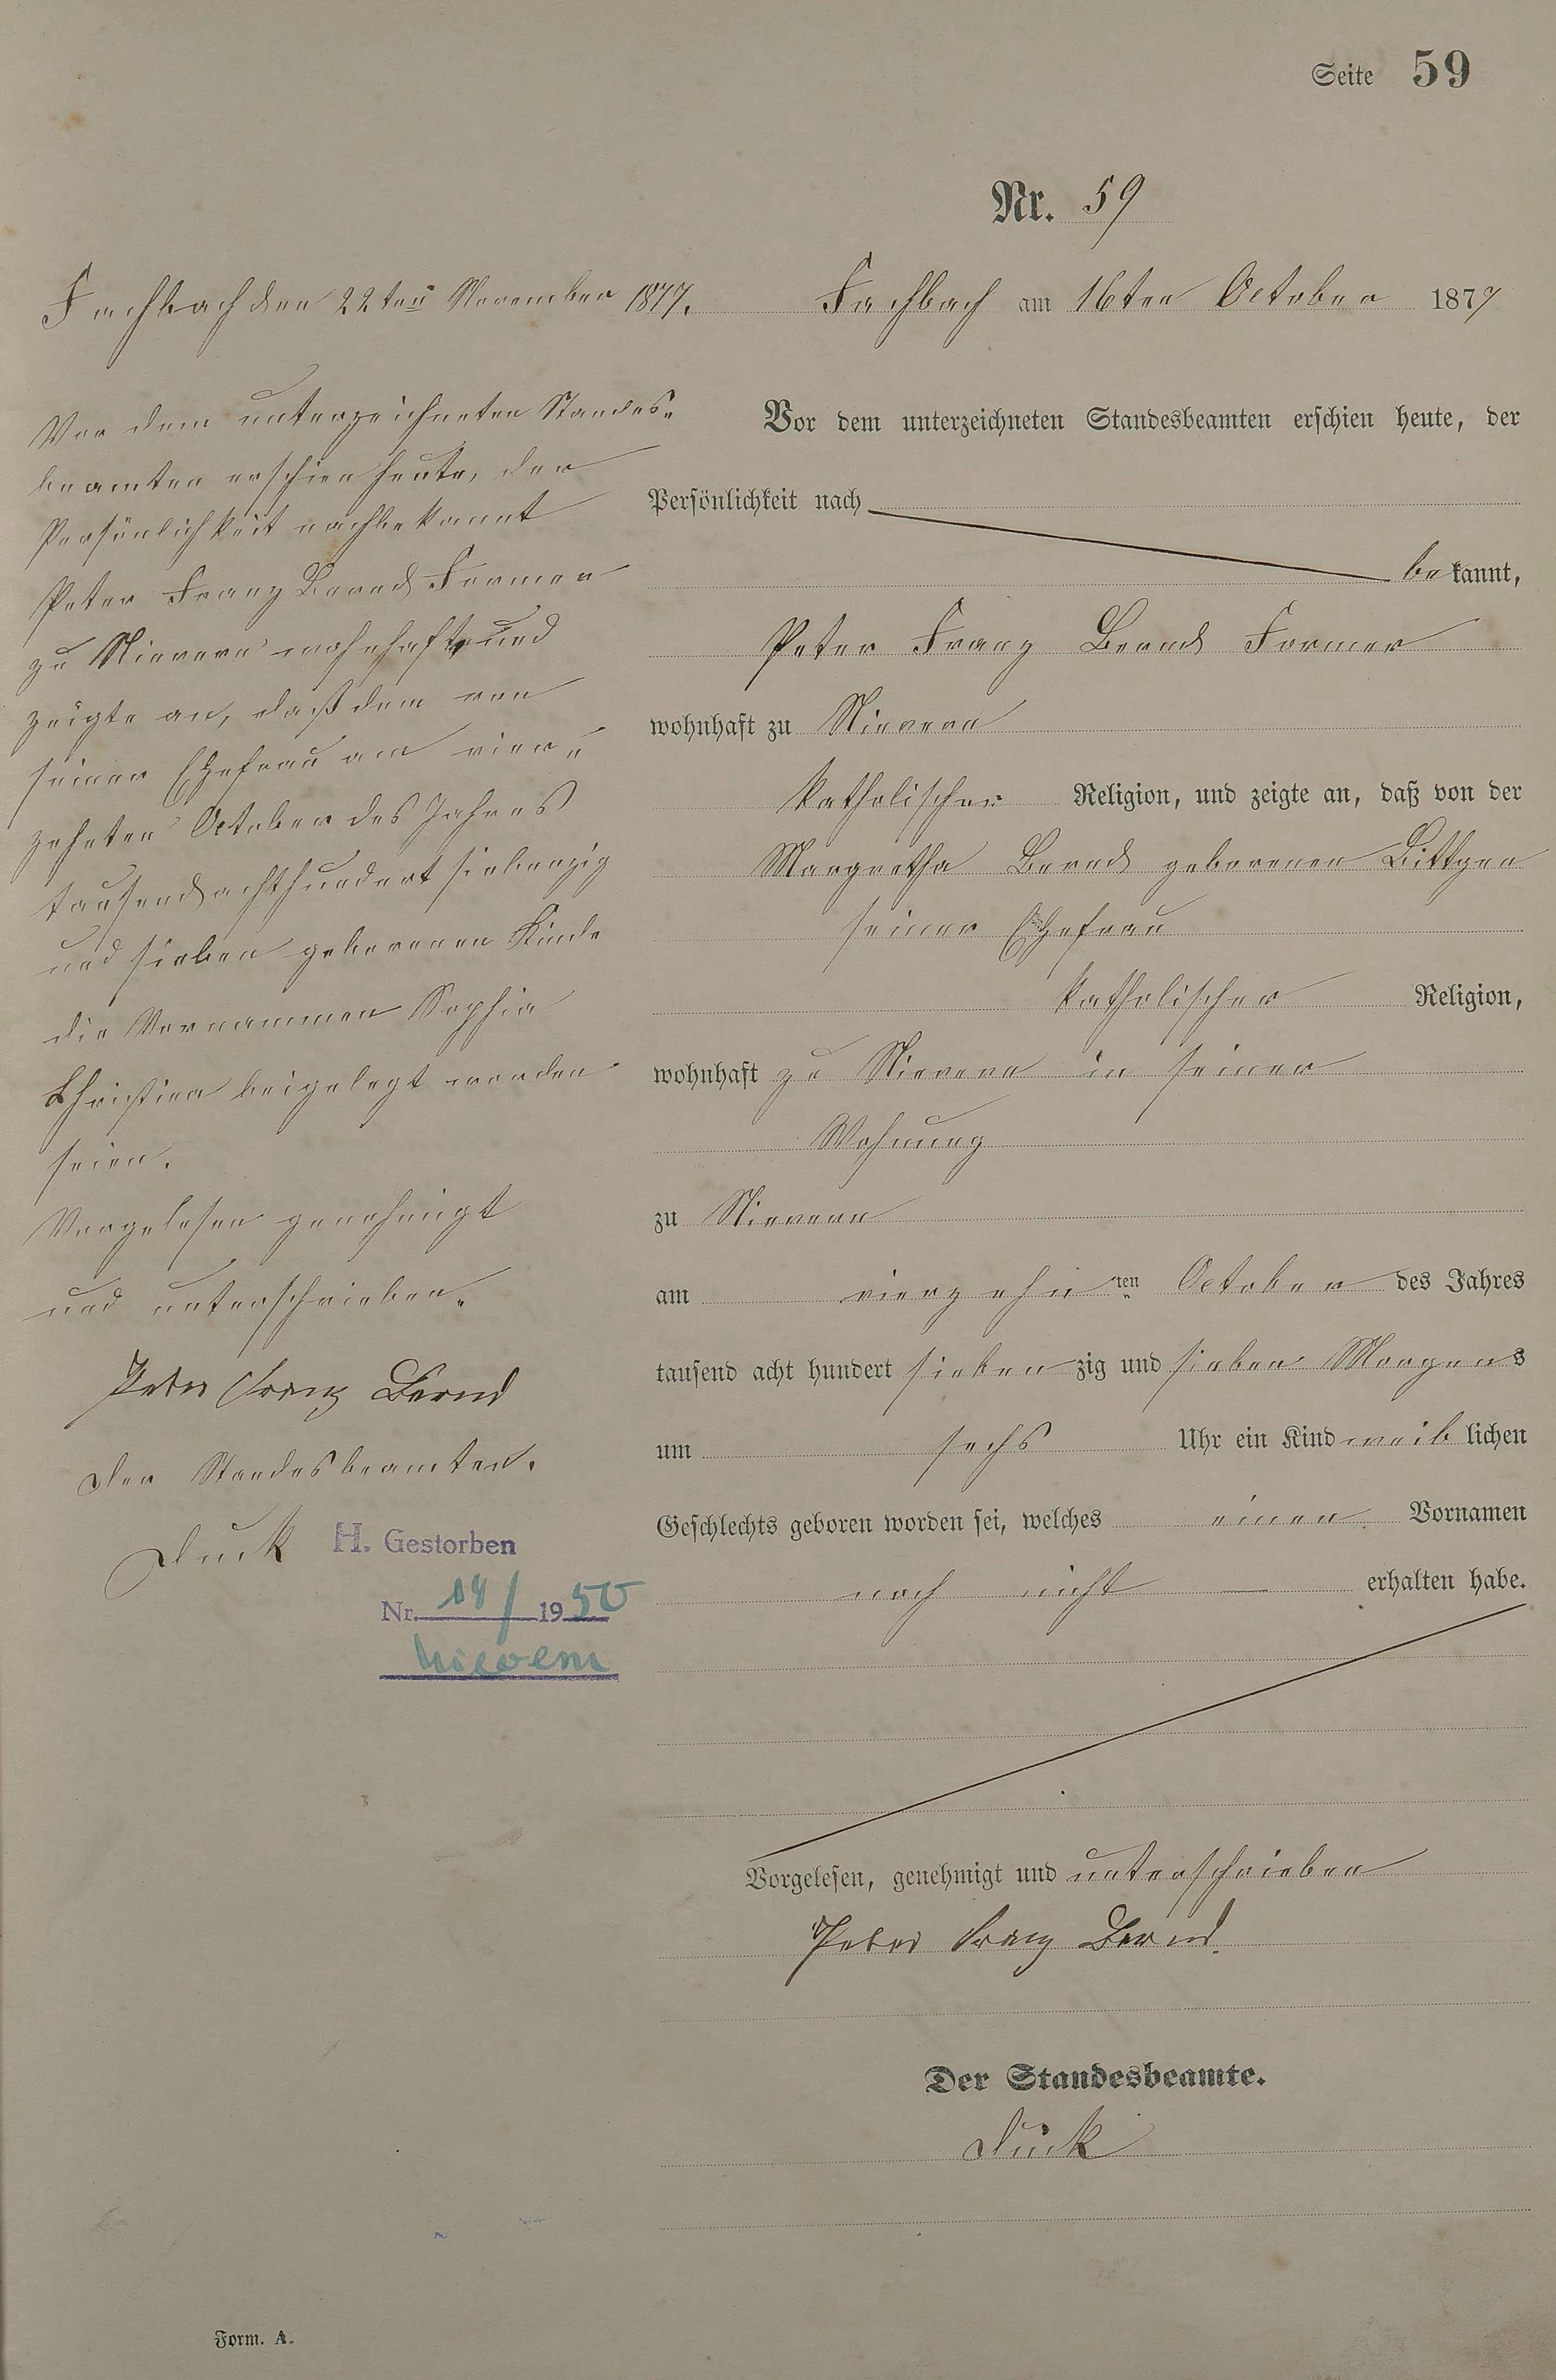 Seite 59
Nr. 59
Fachbach den 22ten November 1877.
Vor dem unterzeichneten Standes-
beamten erschien heute, der
Persönlichkeit nach bekannt
Peter Franz Bernd Former
zu Nievern wohnhaft und
zeigte an, daß dem von
seiner Ehefrau am vier-
zehnten October des Jahres
tausend achthundert siebenzig
und sieben geborenen Kinde
die Vornammen Sophia
Christina beigelegt worden
seien.
Vorgelesen genehmigt
und unterschrieben.
Peter Franz Bernd
Der Standesbeamte.
Duck
H. Gestorben
Nr. 14/1950
Nievern
Fachbach am 16ten October 1877
Vor dem unterzeichneten Standesbeamten erschien heute, der
Persönlichkeit nach
bekannt,
Peter Franz Bernd Former
wohnhaft zu Nievern
katholischer Religion, und zeigte an, daß von der
Margretha Bernd geborenen Littgen
seiner Ehefrau
katholischer Religion,
wohnhaft zu Nievern in seiner
Wohnung
zu Nievern
am vierzehnten October des Jahres
tausend acht hundert siebenzig und sieben Morgens
um sechs Uhr ein Kind weiblichen
Geschlechts geboren worden sei, welches einen Vornamen
noch nicht — erhalten habe.
Vorgelesen, genehmigt und unterschrieben
Peter Franz Bernd.
Der Standesbeamte.
Duck
Form. A.